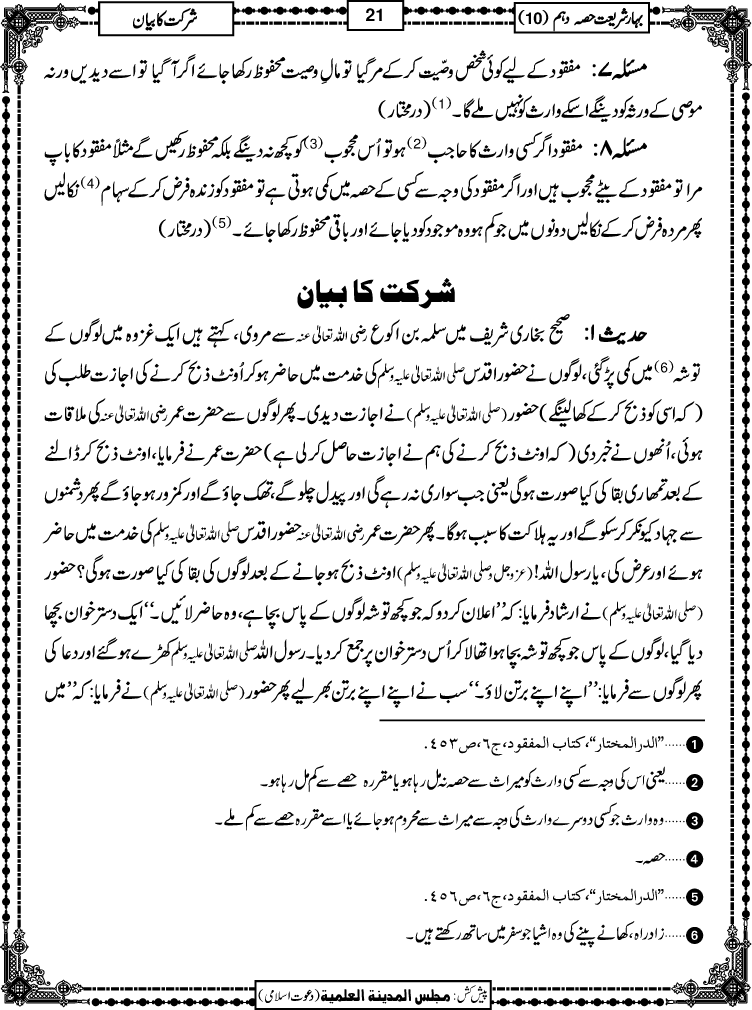 بہار شریعت حصہ دہم (10)
21
شرکت کا بیان
مسئلہ ۷: مفقود کے لیے کوئی شخص وصیّت کرکے مرگیا تو مالِ وصیت محفوظ رکھا جائے اگر آگیا تو اسے دیدیں ورنہ
موصی کے ورثہ کو دینگے اسکے وارث کو نہیں ملے گا۔(1) (درمختار)
مسئلہ ۸: مفقود اگر کسی وارث کا حاجب(2) ہو تو اُس محجوب(3) کو کچھ نہ دینگے بلکہ محفوظ رکھیں گے مثلاً مفقود کا باپ
مرا تو مفقود کے بیٹے محجوب ہیں اور اگر مفقود کی وجہ سے کسی کے حصہ میں کمی ہوتی ہے تو مفقود کو زندہ فرض کرکے سہام(4) نکالیں
پھر مردہ فرض کرکے نکالیں دونوں میں جو کم ہو وہ موجود کو دیا جائے اور باقی محفوظ رکھا جائے۔(5) (درمختار)
شرکت کا بیان
حدیث ۱: صحیح بخاری شریف میں سلمہ بن اکوع رضی اللہ تعالیٰ عنہ سے مروی، کہتے ہیں ایک غزوہ میں لوگوں کے
توشہ(6) میں کمی پڑگئی، لوگوں نے حضور اقدس صلی اللہ تعالیٰ علیہ وسلم کی خدمت میں حاضر ہوکر اُونٹ ذبح کرنے کی اجازت طلب کی
(کہ اسی کو ذبح کرکے کھالینگے) حضور (صلی اللہ تعالیٰ علیہ وسلم) نے اجازت دیدی۔ پھر لوگوں سے حضرت عمر رضی اللہ تعالیٰ عنہ کی ملاقات
ہوئی، اُنھوں نے خبر دی (کہ اونٹ ذبح کرنے کی ہم نے اجازت حاصل کرلی ہے) حضرت عمر نے فرمایا، اونٹ ذبح کر ڈالنے
کے بعد تمھاری بقا کی کیا صورت ہوگی یعنی جب سواری نہ رہے گی اور پیدل چلوگے، تھک جاؤگے اور کمزور ہوجاؤگے پھر دشمنوں
سے جہاد کیونکر کرسکوگے اور یہ ہلاکت کا سبب ہوگا۔ پھر حضرت عمر رضی اللہ تعالیٰ عنہ حضور اقدس صلی اللہ تعالیٰ علیہ وسلم کی خدمت میں حاضر
ہوئے اور عرض کی، یارسول اللہ! (عزوجل وصلی اللہ تعالیٰ علیہ وسلم) اونٹ ذبح ہوجانے کے بعد لوگوں کی بقا کی کیا صورت ہوگی؟ حضور
(صلی اللہ تعالیٰ علیہ وسلم) نے ارشاد فرمایا: کہ ’’اعلان کردو کہ جو کچھ توشہ لوگوں کے پاس بچا ہے، وہ حاضر لائیں۔‘‘ ایک دسترخوان بچھا
دیا گیا، لوگوں کے پاس جو کچھ توشہ بچا ہوا تھا لاکر اُس دسترخوان پر جمع کردیا۔ رسول اللہ صلی اللہ تعالیٰ علیہ وسلم کھڑے ہوگئے اور دعا کی
پھر لوگوں سے فرمایا: ’’اپنے اپنے برتن لاؤ۔‘‘ سب نے اپنے اپنے برتن بھر لیے پھر حضور (صلی اللہ تعالیٰ علیہ وسلم) نے فرمایا: کہ ’’میں
❶......’’الدرالمختار‘‘، کتاب المفقود، ج٦، ص٤٥٣.
❷......یعنی اس کی وجہ سے کسی وارث کو میراث سے حصہ نہ مل رہا ہو یا مقررہ حصے سے کم مل رہا ہو۔
❸......وہ وارث جو کسی دوسرے وارث کی وجہ سے میراث سے محروم ہوجائے یا اسے مقررہ حصے سے کم ملے۔
❹......حصہ۔
❺......’’الدرالمختار‘‘، کتاب المفقود، ج٦، ص٤٥٦.
❻......زادِ راہ، کھانے پینے کی وہ اشیا جو سفر میں ساتھ رکھتے ہیں۔
پیش کش: مجلس المدینۃ العلمیۃ (دعوت اسلامی)